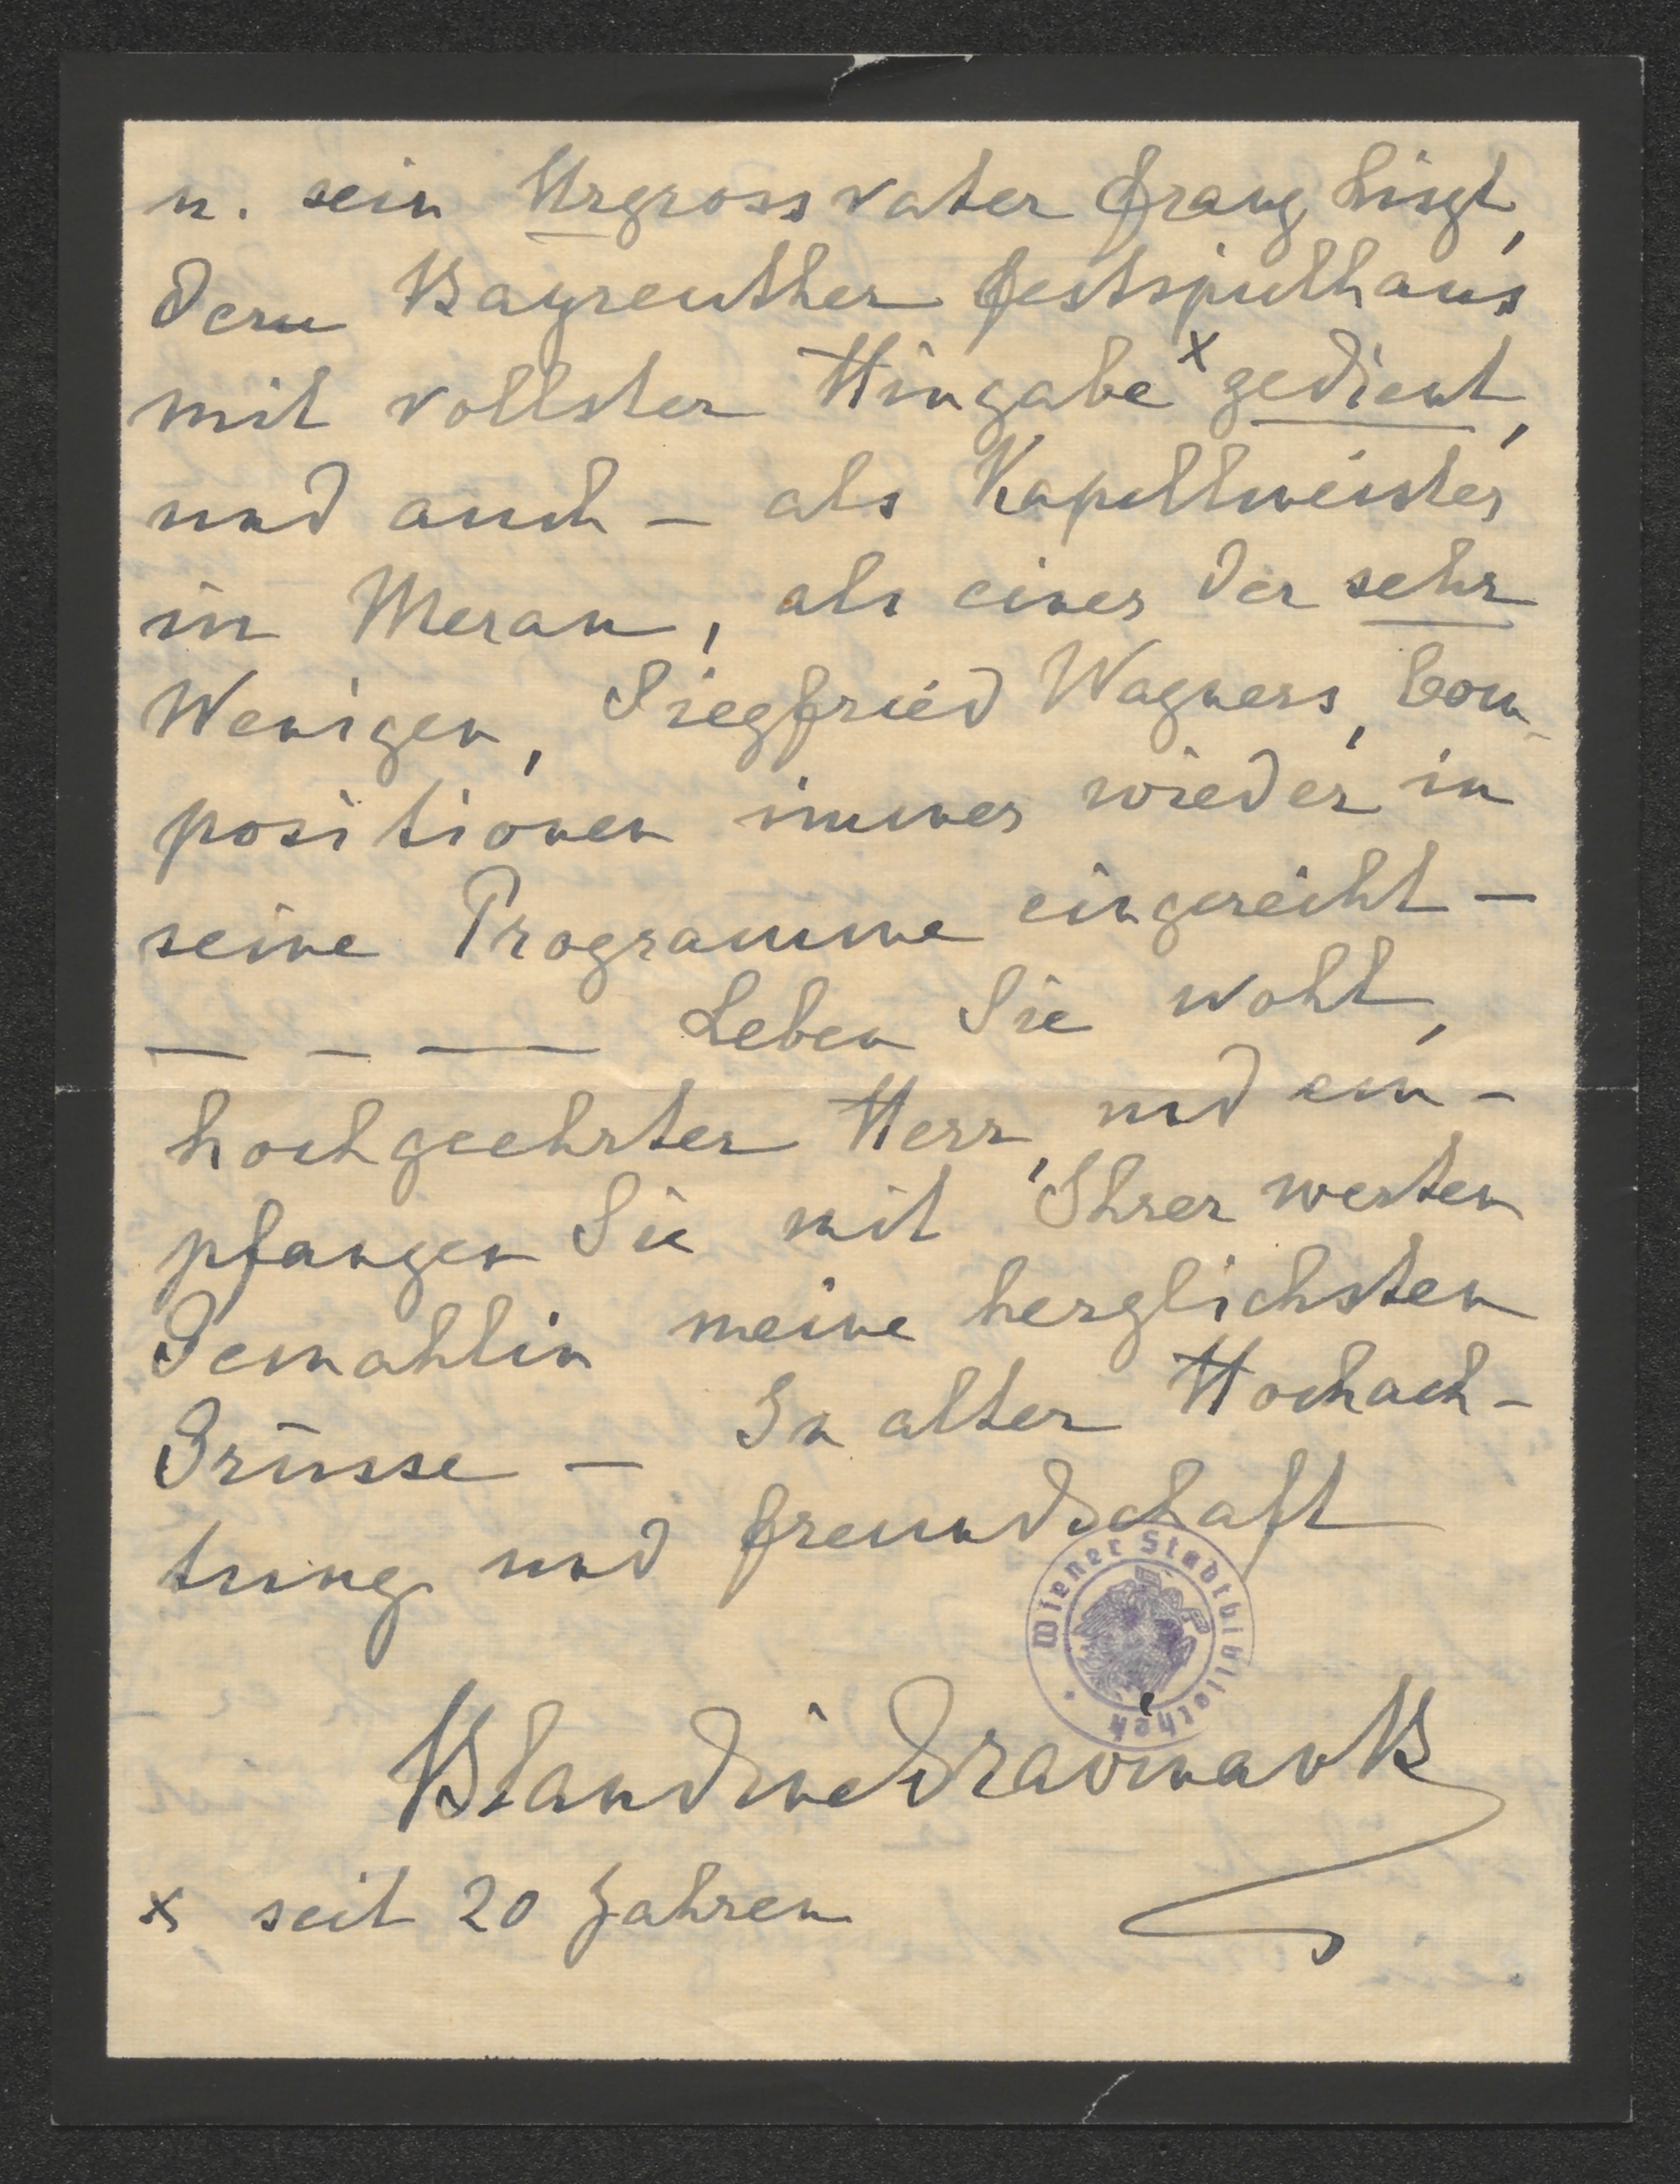 u. sein Urgrossvater Franz Liszt,
dem Bayreuther Festspielhaus
mit vollster Hingabe x gedient,
und auch – als Kapellmeister
in Meran, als einer der sehr
Wenigen, Siegfried Wagners, Com-
positionen immer wieder in
seine Programme eingereiht –
— – — Leben Sie wohl,
hochgeehrter Herr, und em-
pfangen Sie mit Ihrer werten
Gemahlin meine herzlichsten
Grüsse – In alter Hochach-
tung und Freundschaft
Wiener Stadtbibliothek
Blandine
x seit 20 Jahren